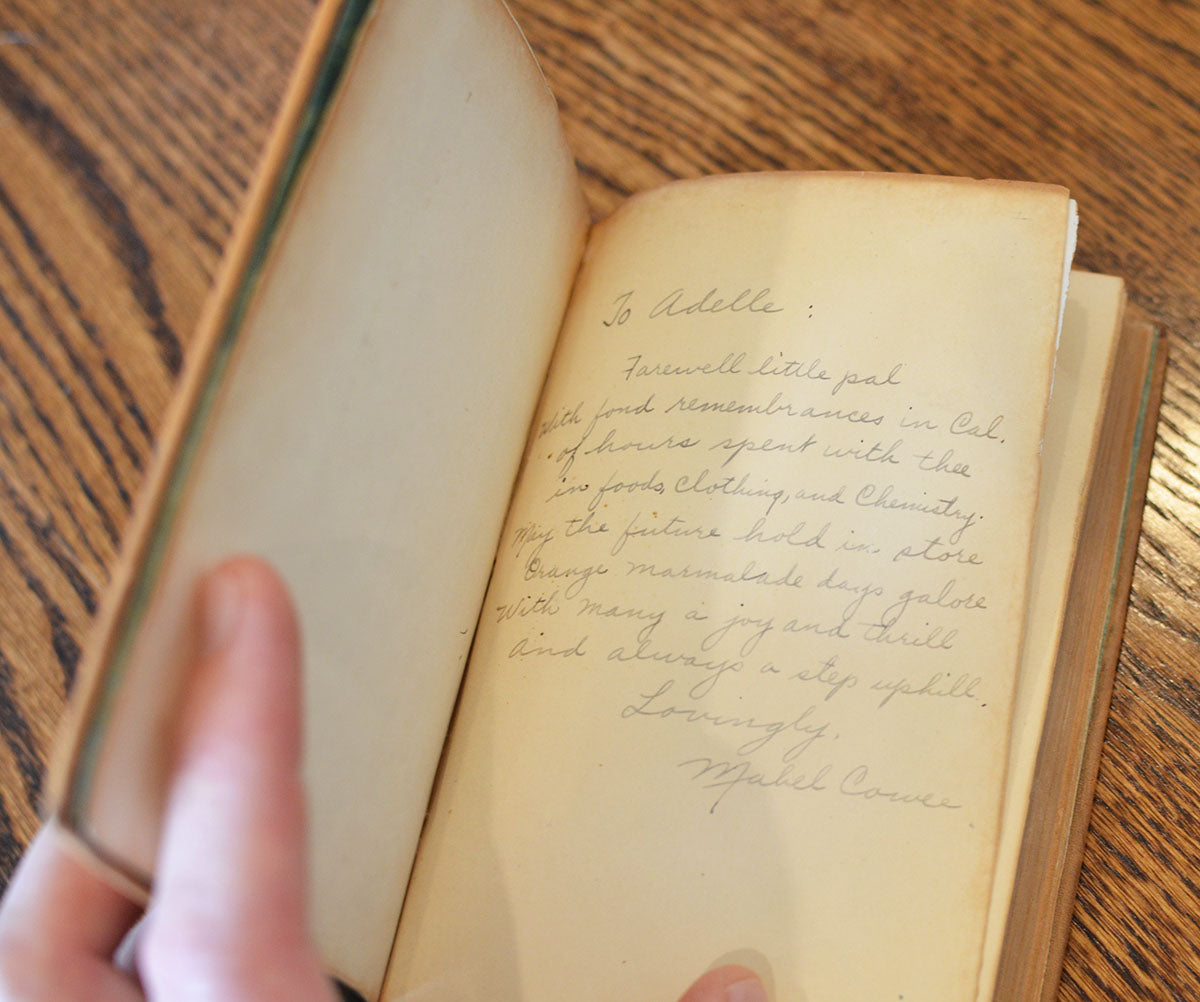 To Adelle :
Farewell little pal
With fond remembrances in Cal.
of hours spent with thee
in foods, Clothing, and Chemistry.
May the future hold in store
Orange marmalade days galore
With many a joy and thrill
And always a step uphill.
Lovingly,
Mabel Cowee